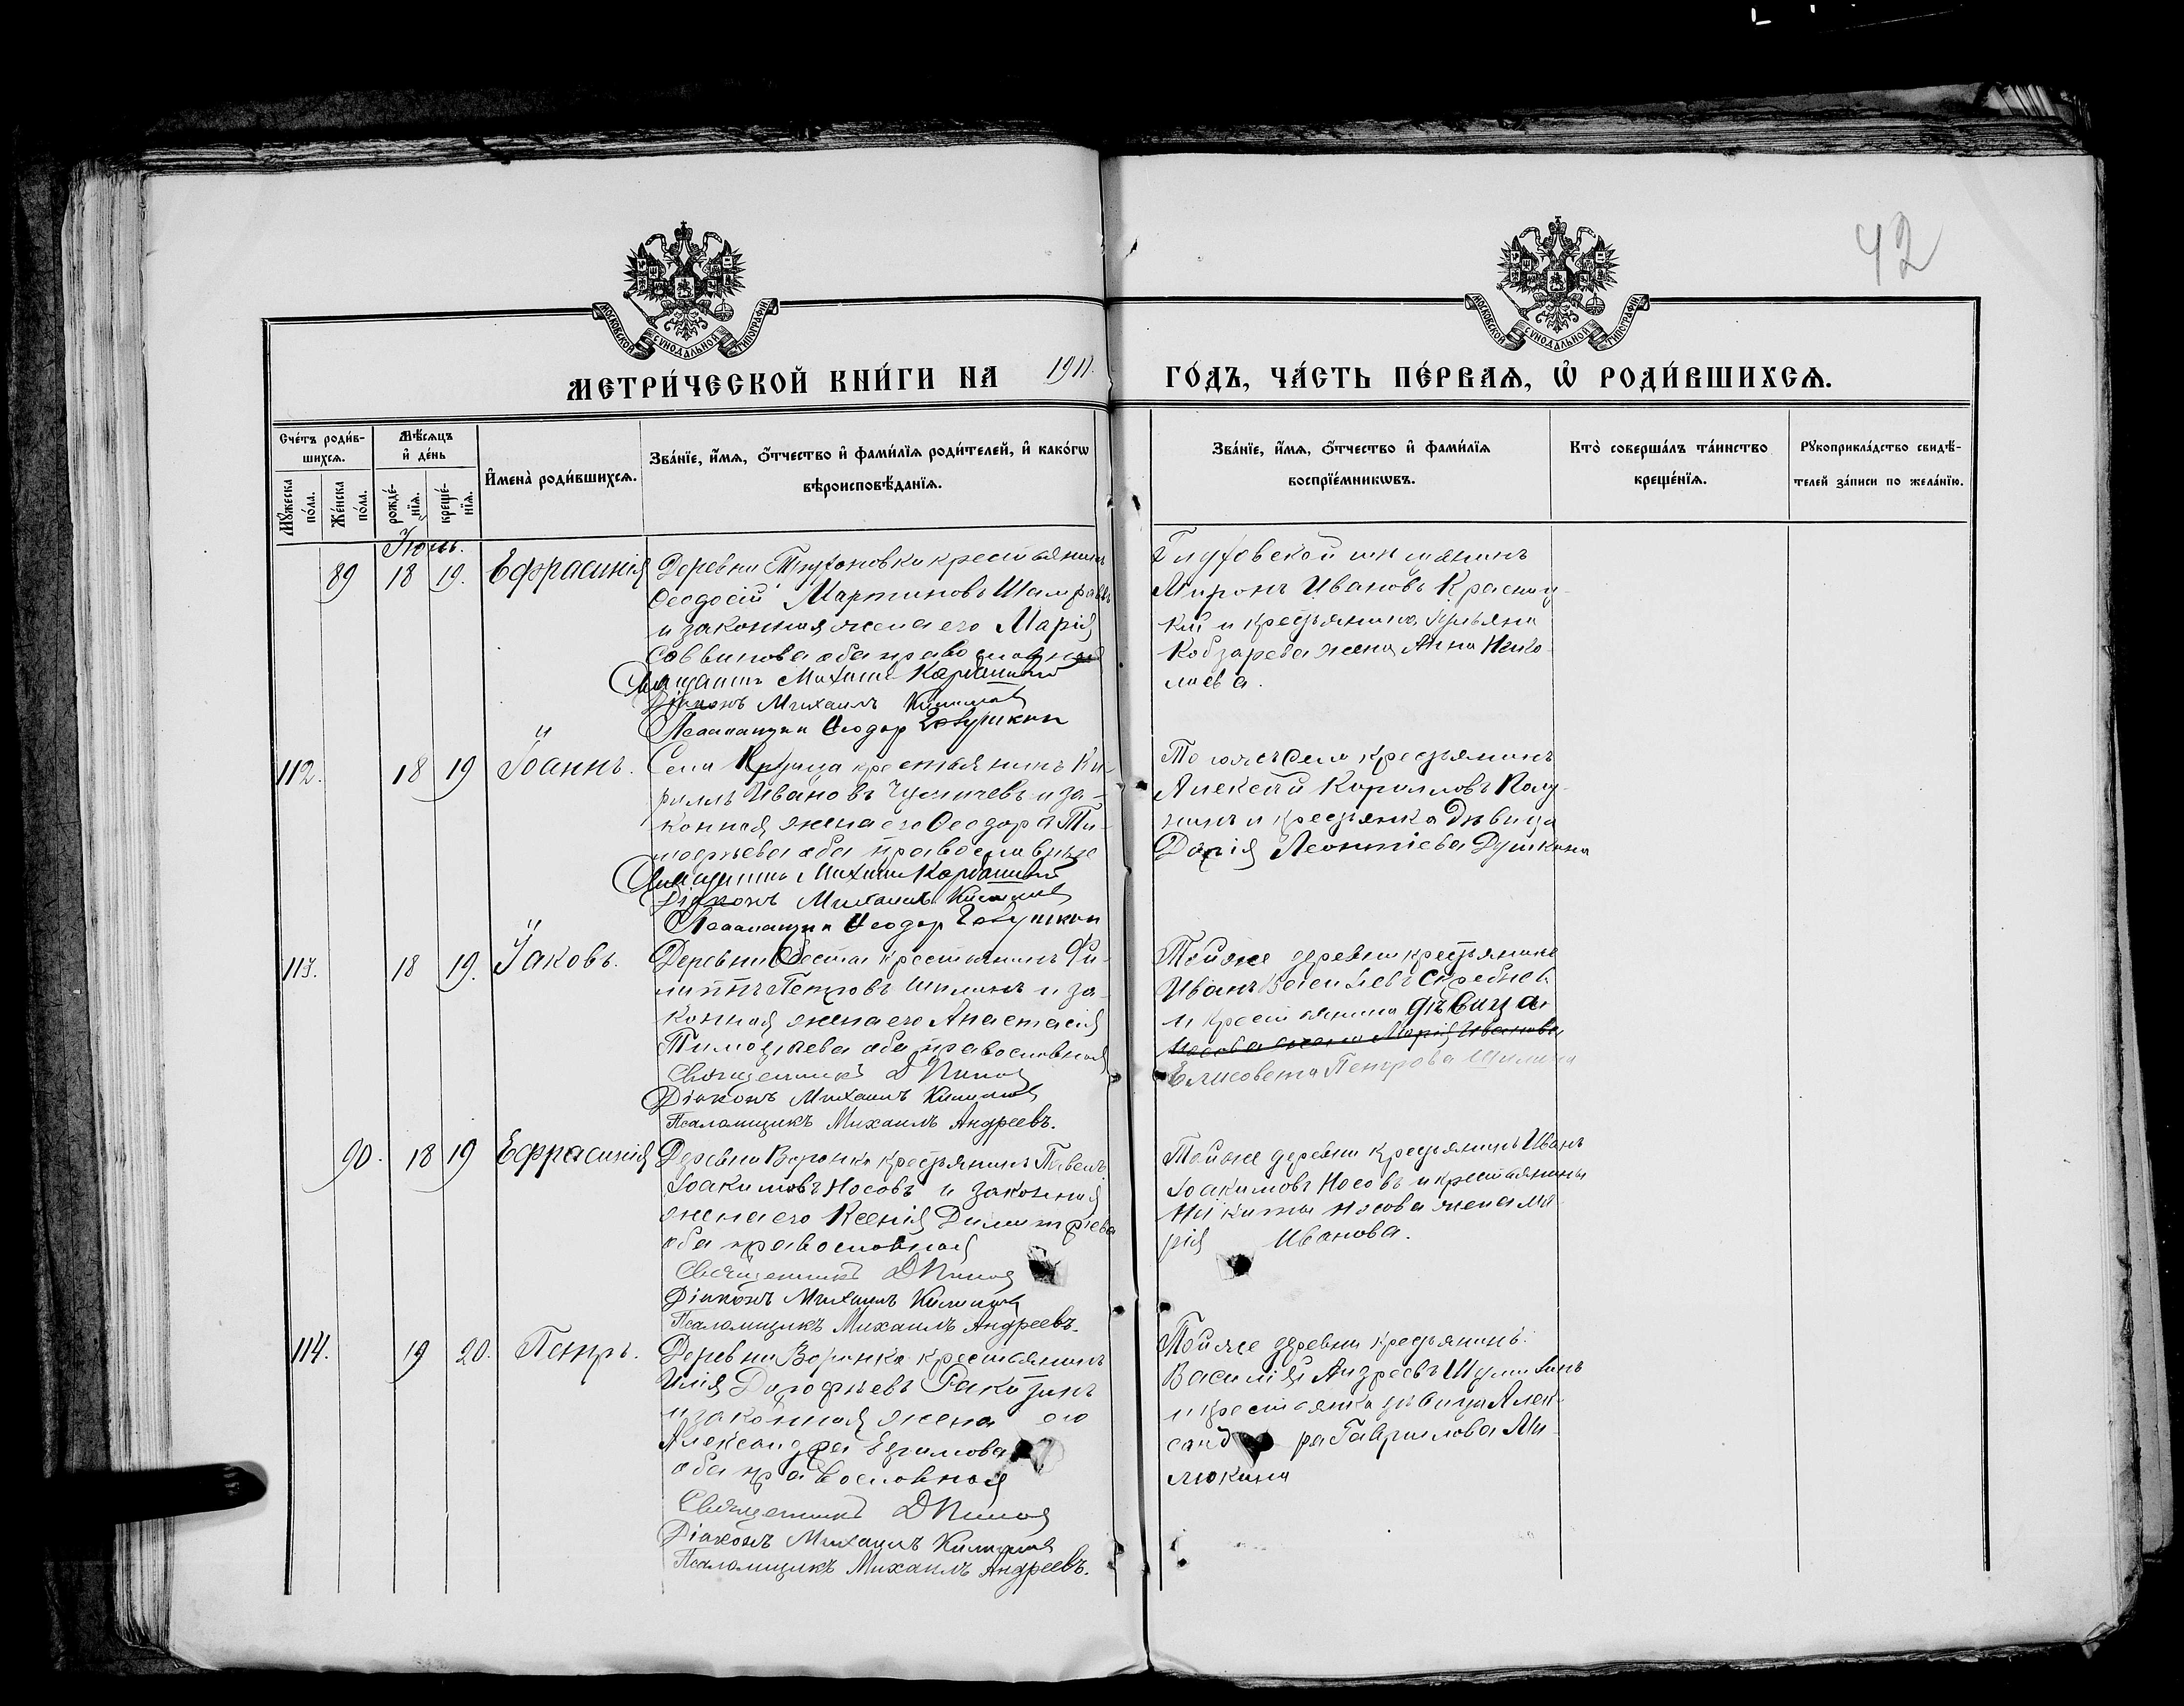 42
МОСКОВСКОЙ СѴНОДАЛЬНОЙ ТИПОГРАФІИ
МОСКОВСКОЙ СѴНОДАЛЬНОЙ ТИПОГРАФІИ
МЕТРИ́ЧЕСКОЙ КНИ́ГИ НА 1911. ГО́ДЪ, ЧА́СТЬ ПЕ́РВАѦ, Ѡ҆ РОДИ́ВШИХСѦ.
Сче́тъ роди́в-
шихсѧ.
Мѣ́сѧцъ
и҆ де́нь
Мꙋ́жеска по́ла.
Же́нска по́ла.
рожде́-
нїѧ.
креще́-
нїѧ.
И҆мена̀ роди́вшихсѧ.
Зва́нїе, и҆́мѧ, ѻ҆́тчество и҆ фами́лїѧ роди́телей, и҆ како́гѡ
вѣроисповѣ́данїѧ.
Зва́нїе, и҆́мѧ, ѻ҆́тчество и҆ фами́лїѧ
воспрїе́мникѡвъ.
Кто̀ соверша́лъ та́инство
креще́нїѧ.
Рꙋкоприкла́дство свидѣ́-
телей за́писи по жела́нїю.
Іюль.
89 18 19. Ефрасинія
Деревни крестьянинъ
Ѳеодосій Мартиновъ
и законная жена его Марія
Саввинова оба православная
Священникъ Михаилъ
Діаконъ Михаилъ
Псаломщикъ Ѳеодор
Миронъ Ивановъ
кій и крестьянина
Кобзарева жена Анна Нико-
лаева.
112. 18 19 Іоаннъ.
Села Крупца крестьянинъ Ки-
риллъ Ивановъ и за-
конная жена его Ѳеодора Ти-
моѳеева оба православные
Священникъ Михаилъ
Діаконъ Михаилъ
Псаломщикъ Ѳеодор
Того же села крестьянинъ
Алексѣй Кирилловъ
и крестьянка дѣвица
Дарія Леонтіева Душкина
113. 18 19. Іаковъ.
Деревни крестьянинъ Фи-
липпъ Петровъ Шилинъ и за-
конная жена его Анастасія
Тимоѳеева оба православная
Священникъ
Діаконъ Михаилъ
Псаломщикъ Михаилъ Андреевъ.
Той же деревни крестьянинъ
Иванъ Васильевъ
и крестьянина дѣвица
Носова жена Марія Иванова
Елисовета Петрова Шилина
90. 18 19 Ефрасинія
Деревни Воронка крестьянинъ Павелъ
Іоакимовъ Носовъ и законная
жена его Ксенія Димитріева
оба православная
Священникъ
Діаконъ Михаилъ
Псаломщикъ Михаилъ Андреевъ.
Той же деревни крестьянинъ Иванъ
Іоакимовъ Носовъ и крестьянина
Никиты Носова жена Ма-
рія Иванова.
114. 19 20. Петръ.
Деревни Воронка крестьянинъ
Илія Дорофѣевъ Ракозинъ
и законная жена его
Александра Ефимова
оба православная
Священникъ
Діаконъ Михаилъ
Псаломщикъ Михаилъ Андреевъ.
Той же деревни крестьянинъ
Василій Андреевъ
и крестьянка дѣвица Алек-
сандра Гаврилова Ми-
люкина